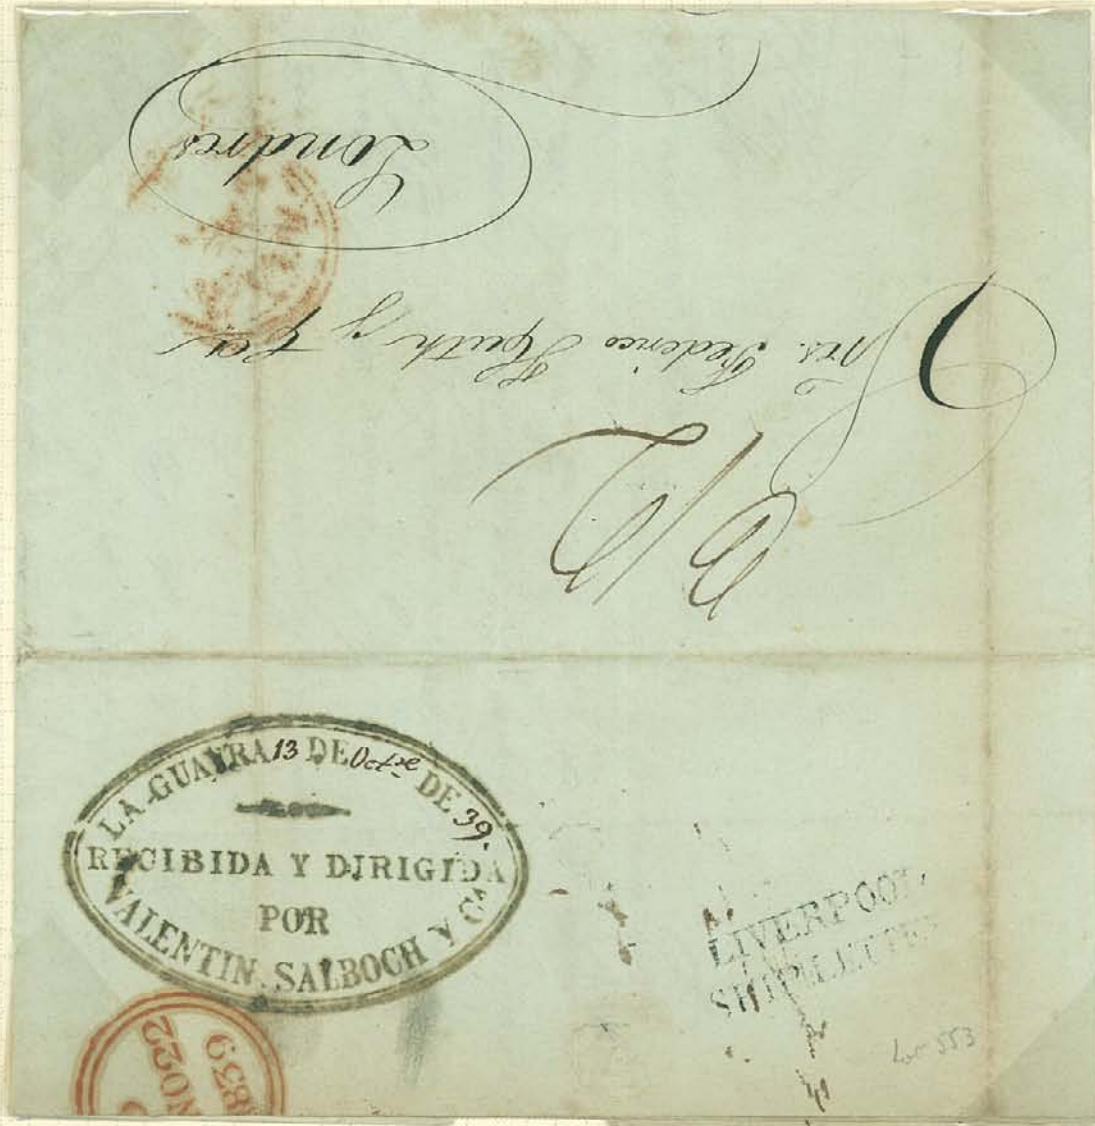 Londres
Sres. Federico Huth y Ca
LA GUAYRA 13 DE Octre DE 39.
RECIBIDA Y DIRIGIDA
POR
VALENTIN, SALBOCH Y Ca
LIVERPOOL
SHIP LETTER
Lot 553
NO 22
1839